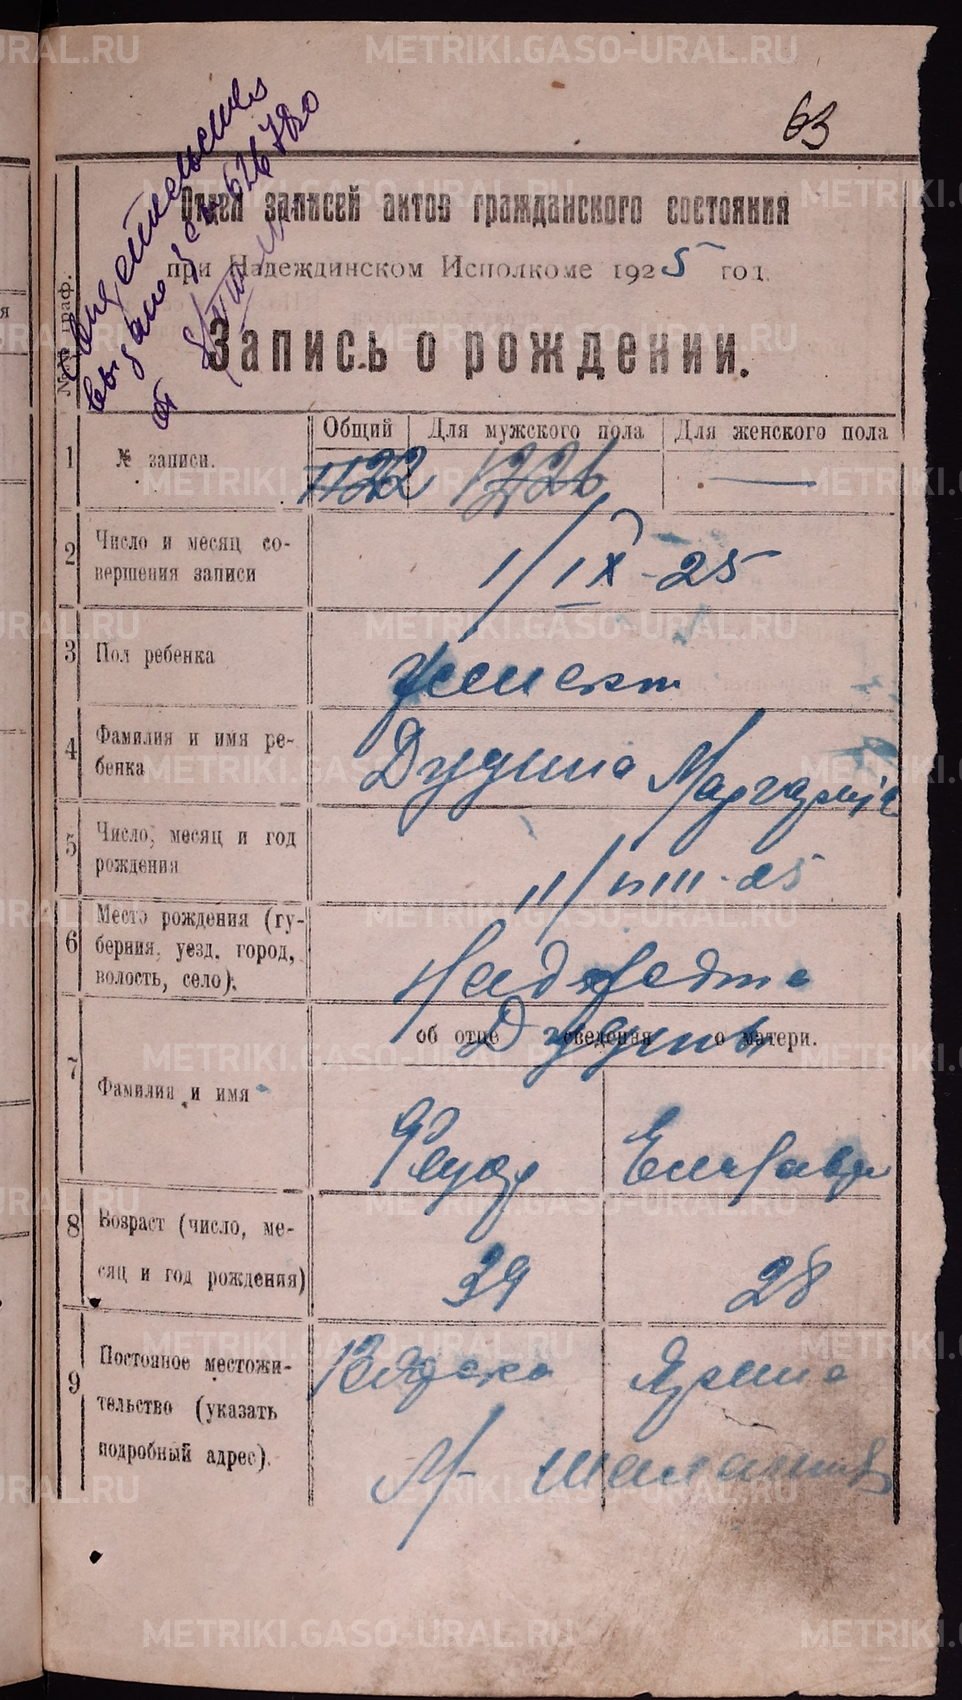 63
Свидетельство
выдано
от
Отдел записей актов гражданского состояния
при Надеждинском Исполкоме 1925 год.
Запись о рождении.
№№ граф.
Общий Для мужского пола Для женского пола
1 № записи. 1122 1226 —
2 Число и месяц со-
вершения записи 1/IX-25
3 Пол ребенка женск
4 Фамилия и имя ре-
бенка Дудина Маргарита
5 Число, месяц и год
рождения 11/VIII-25
6 Место рождения (гу-
берния, уезд, город,
волость, село).
об отце сведения о матери.
Дудины
7 Фамилия и имя
Федор Елизавета
8 Возраст (число, ме-
сяц и год рождения) 39 28
9 Постоянное местожи-
тельство (указать
подробный адрес).
METRIKI.GASO-URAL.RU